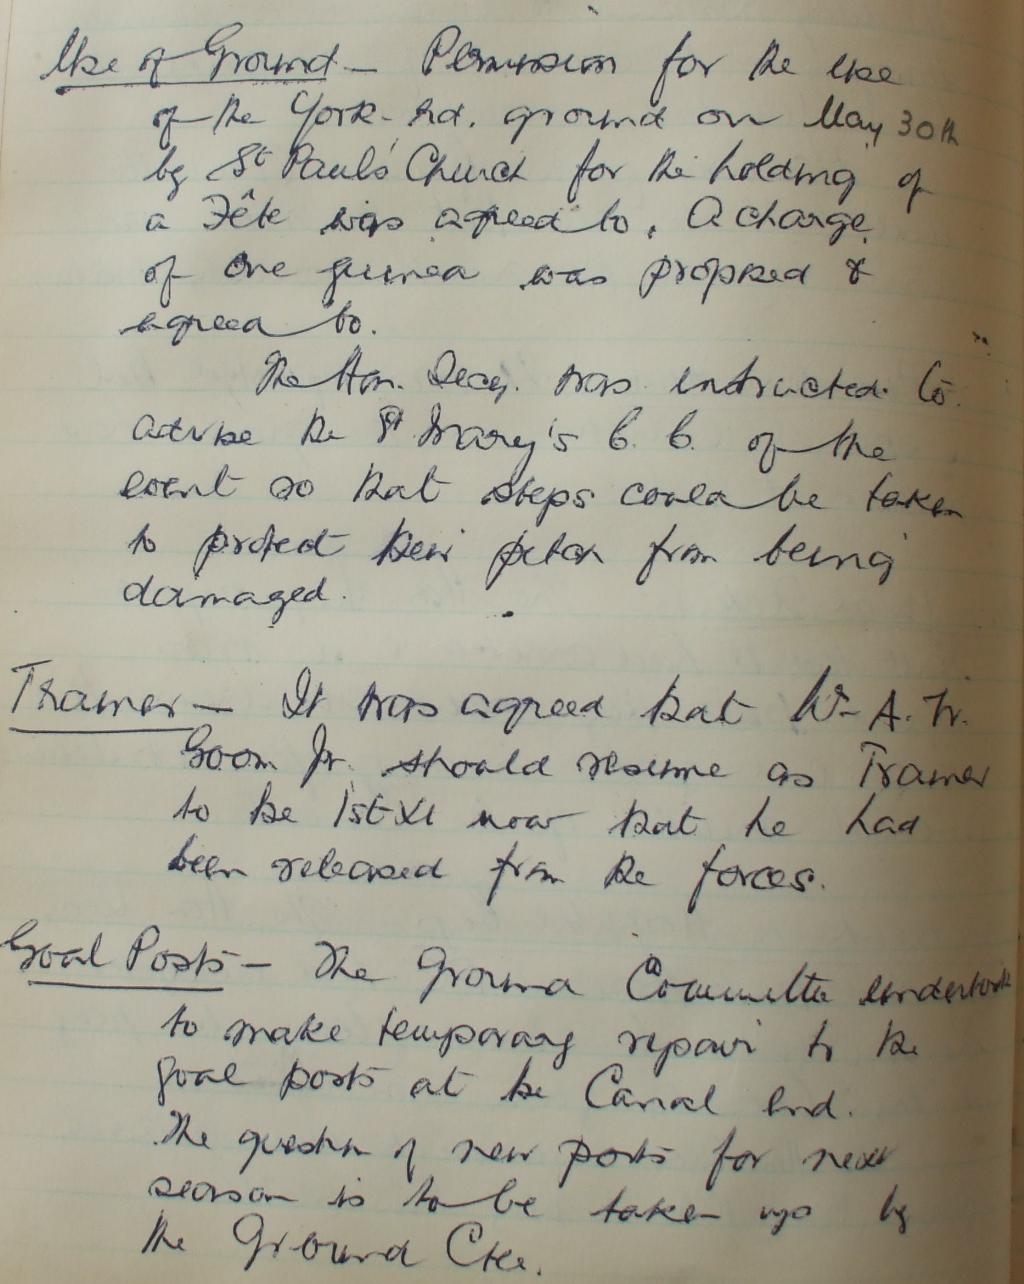 Use of Ground — Permission for the use
of the York-Rd. ground on May 30th
by St Paul's Church for the holding of
a Fête was agreed to. A charge
of one guinea was proposed &
agreed to.
The Hon. Secy. was instructed to
advise the St Mary's C. C. of the
event so that steps could be taken
to protect their pitch from being
damaged.
Trainer — It was agreed that A. W.
Goom Jr. should resume as Trainer
to the 1st XI now that he had
been released from the forces.
Goal Posts — The Ground Committee undertook
to make temporary repair to the
goal posts at the Canal End.
The question of new posts for next
season is to be taken up by
the Ground Cttee.